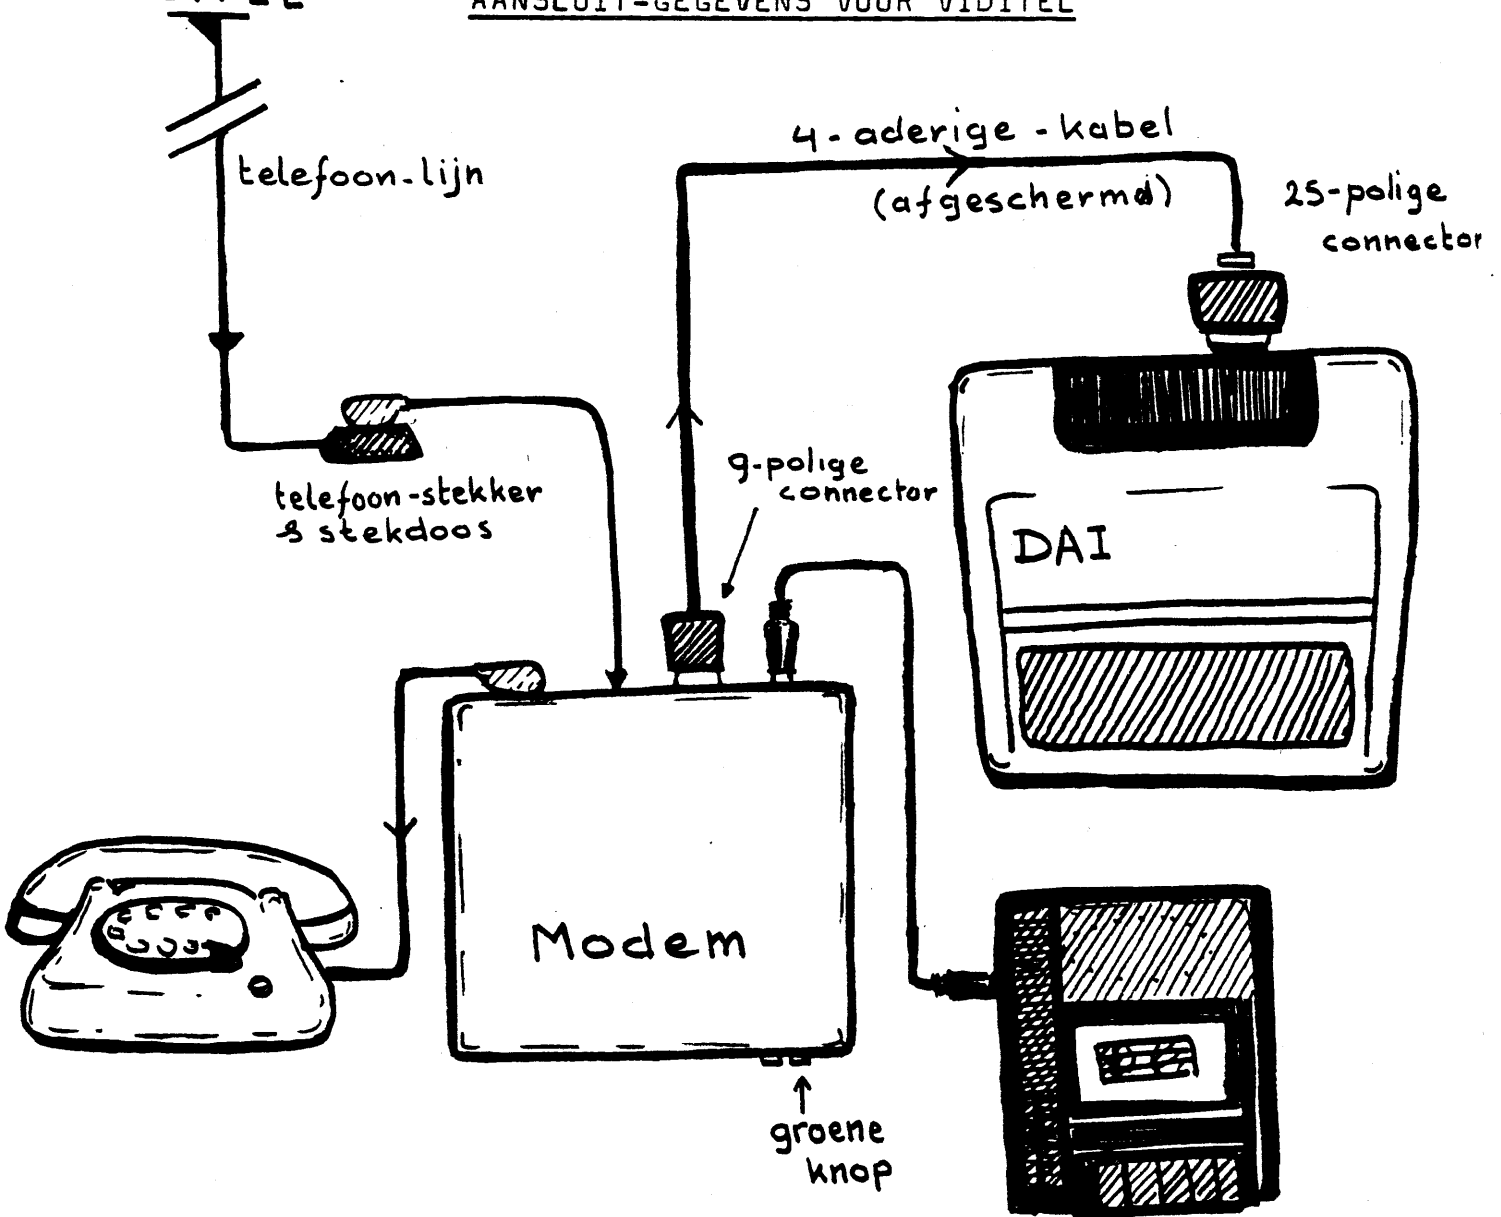 AANSLUIT-GEGEVENS VOOR VIDITEL
telefoon-lijn
4-aderige-kabel
(afgeschermd)
25-polige
connector
telefoon-stekker
& stekdoos
9-polige
connector
DAI
Modem
groene
knop